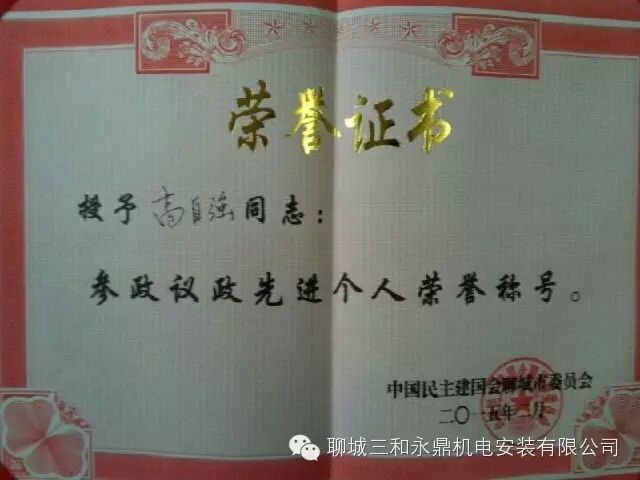 荣誉证书
授予高自强同志：
参政议政先进个人荣誉称号。
中国民主建国会聊城市委员会
二〇一五年二月
聊城三和永鼎机电安装有限公司